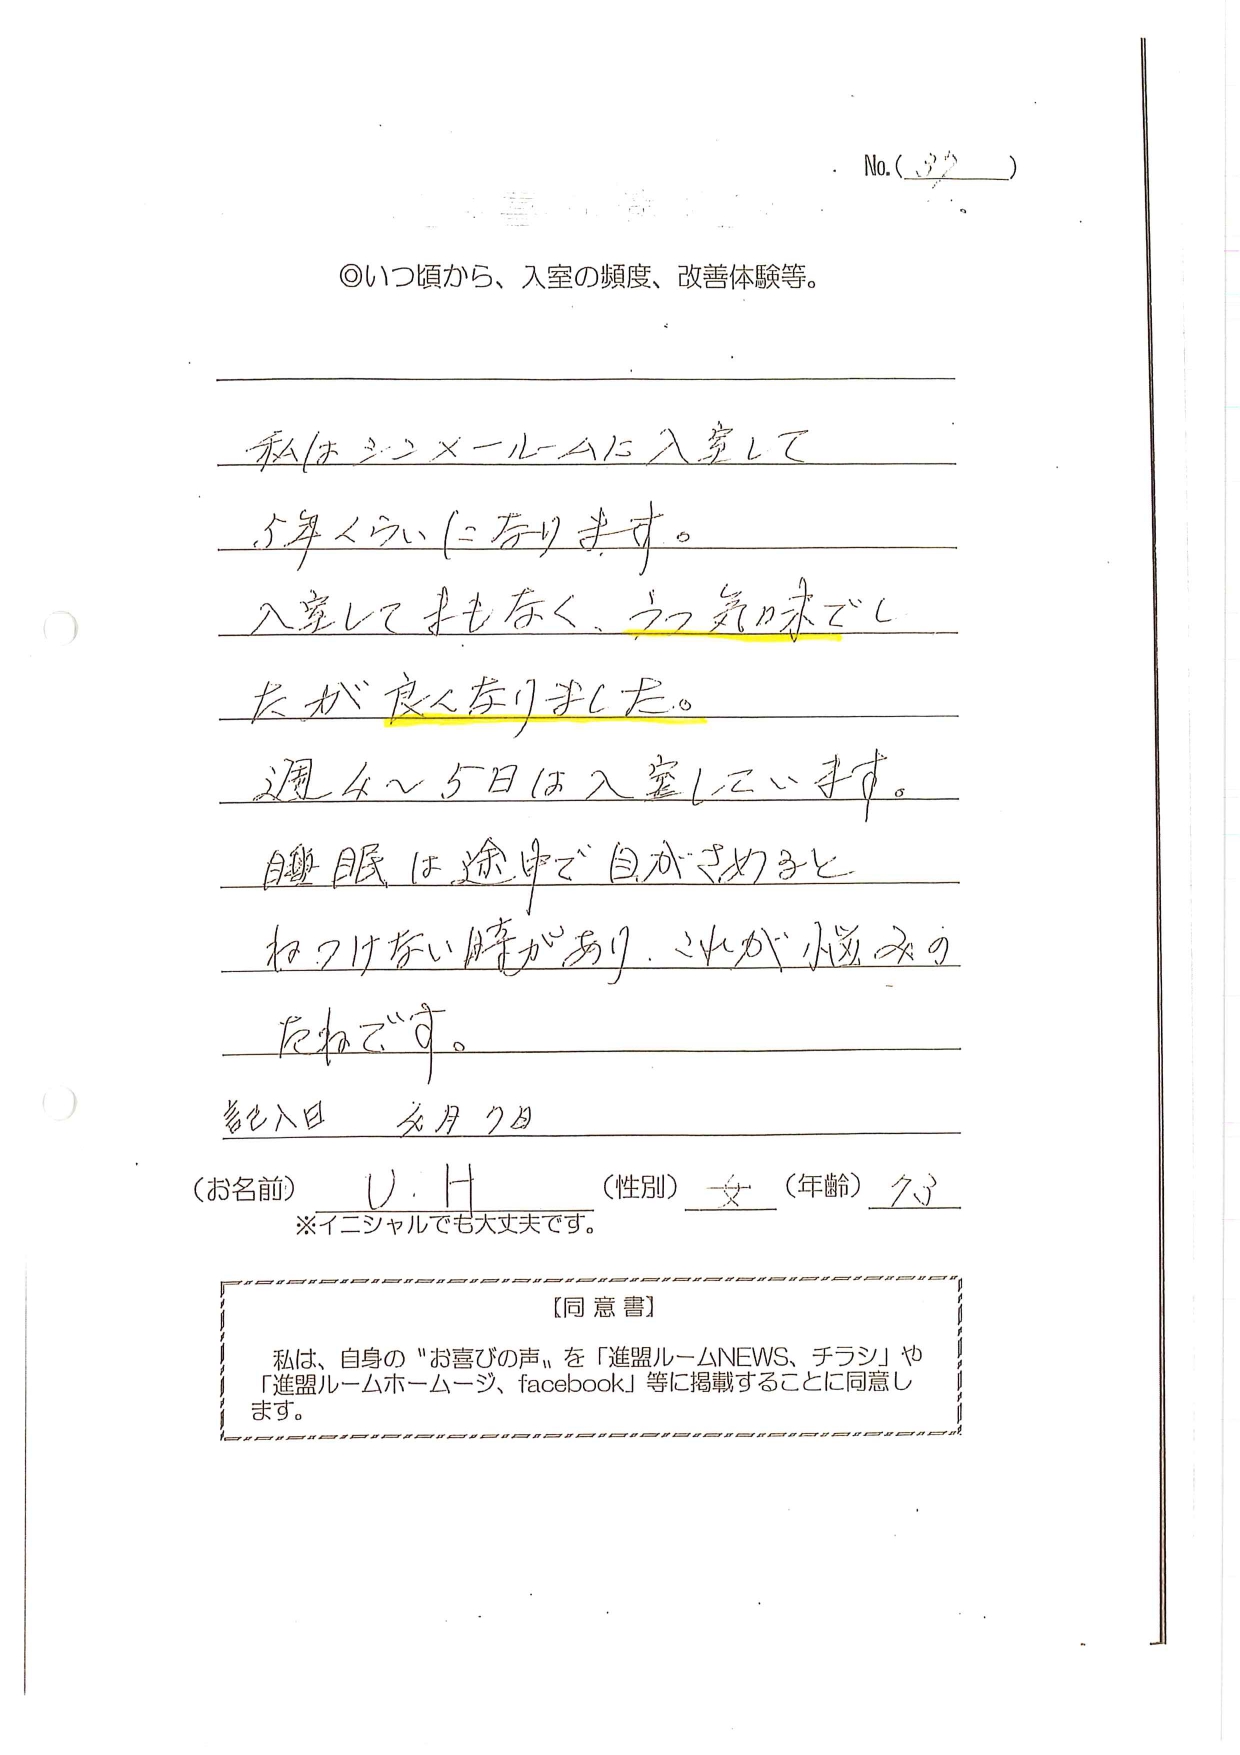 No.( 37 )
◎いつ頃から、入室の頻度、改善体験等。
私はシンメールームに入室して
5年くらいになります。
入室してまもなく、うつ気味でし
たが良くなりました。
週4〜5日は入室しています。
睡眠は途中で目がさめると
ねつけない時があり、これが悩みの
たねです。
記入日 月7日
(お名前) U.H (性別) 女 (年齢) 73
※イニシャルでも大丈夫です。
【同意書】
私は、自身の〝お喜びの声〟を「進盟ルームNEWS、チラシ」や
「進盟ルームホームージ、facebook」等に掲載することに同意し
ます。